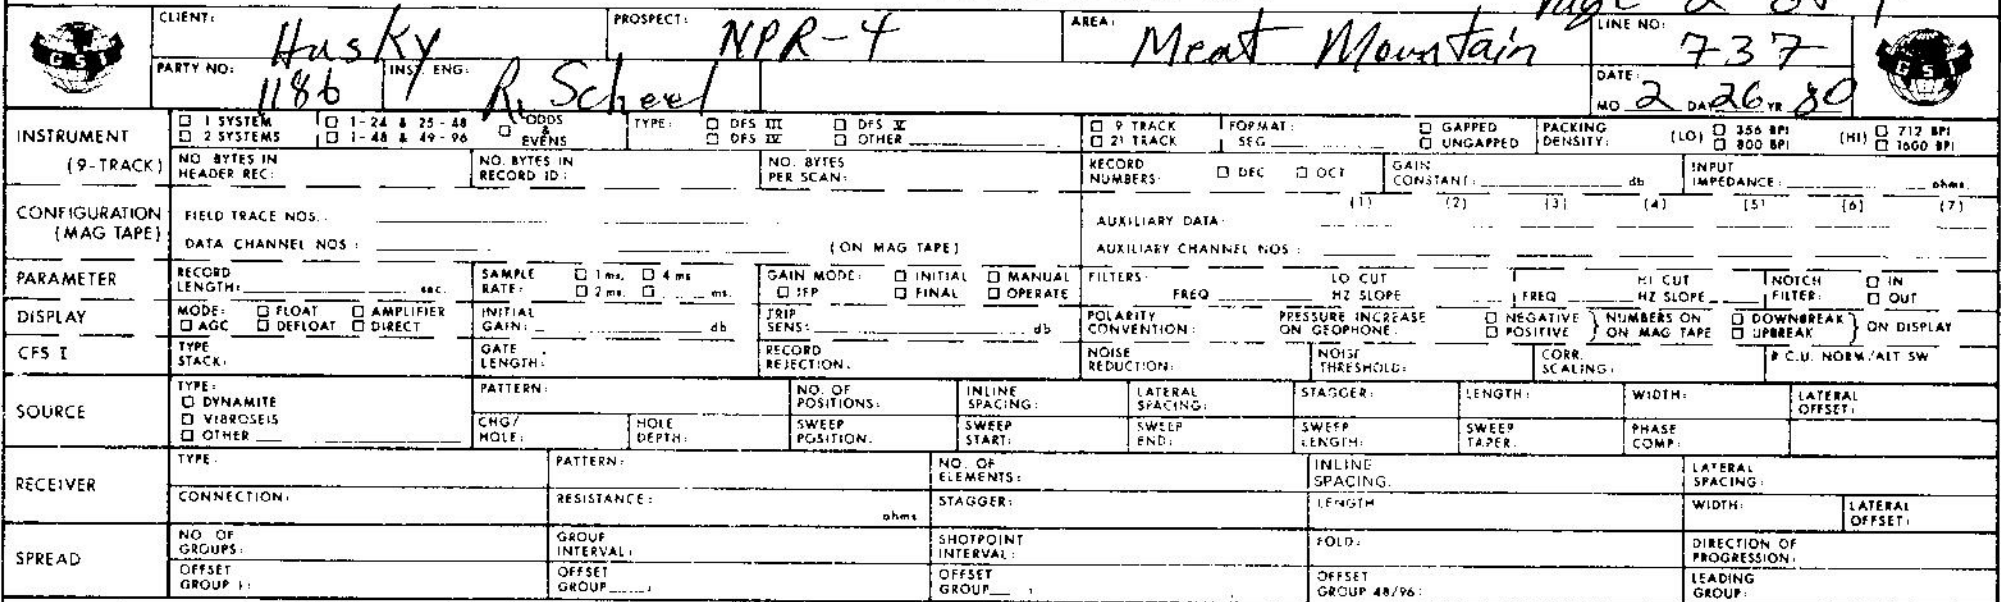 Page 2 of
CLIENT: Husky PROSPECT: NPR-4 AREA: Meat Mountain LINE NO: 737
GSI GSI
PARTY NO: 1186 INST. ENG: R. Scheel DATE: MO 2 DA 26 YR 80
INSTRUMENT □ 1 SYSTEM □ 1-24 & 25-48 □ ODDS & EVENS TYPE: □ DFS III □ DFS V □ 9 TRACK FORMAT: □ GAPPED PACKING DENSITY: (LO) □ 356 BPI (HI) □ 712 BPI
□ 2 SYSTEMS □ 1-48 & 49-96 □ DFS IV □ OTHER □ 21 TRACK SEG □ UNGAPPED □ 800 BPI □ 1600 BPI
(9-TRACK) NO. BYTES IN HEADER REC: NO. BYTES IN RECORD ID: NO. BYTES PER SCAN: RECORD NUMBERS: □ DEC □ OCT GAIN CONSTANT: db INPUT IMPEDANCE: ohms
CONFIGURATION (MAG TAPE) FIELD TRACE NOS.: AUXILIARY DATA: (1) (2) (3) (4) (5) (6) (7)
DATA CHANNEL NOS: (ON MAG TAPE) AUXILIARY CHANNEL NOS:
PARAMETER RECORD LENGTH: sec. SAMPLE RATE: □ 1 ms. □ 4 ms □ 2 ms. □ ms. GAIN MODE: □ INITIAL □ MANUAL □ IFP □ FINAL □ OPERATE FILTERS: FREQ LO CUT HZ SLOPE FREQ HI CUT HZ SLOPE NOTCH FILTER: □ IN □ OUT
DISPLAY MODE: □ FLOAT □ AMPLIFIER □ AGC □ DEFLOAT □ DIRECT INITIAL GAIN: db TRIP SENS: db POLARITY CONVENTION: PRESSURE INCREASE ON GEOPHONE: □ NEGATIVE □ POSITIVE } NUMBERS ON MAG TAPE □ DOWNBREAK □ UPBREAK } ON DISPLAY
CFS I TYPE STACK: GATE LENGTH: RECORD REJECTION: NOISE REDUCTION: NOISE THRESHOLD: CORR. SCALING: # C.U. NORM/ALT SW
SOURCE TYPE: □ DYNAMITE □ VIBROSEIS □ OTHER PATTERN: NO. OF POSITIONS: INLINE SPACING: LATERAL SPACING: STAGGER: LENGTH: WIDTH: LATERAL OFFSET:
CHG/HOLE: HOLE DEPTH: SWEEP POSITION: SWEEP START: SWEEP END: SWEEP LENGTH: SWEEP TAPER: PHASE COMP:
RECEIVER TYPE: PATTERN: NO. OF ELEMENTS: INLINE SPACING: LATERAL SPACING:
CONNECTION: RESISTANCE: ohms STAGGER: LENGTH WIDTH: LATERAL OFFSET:
SPREAD NO. OF GROUPS: GROUP INTERVAL: SHOTPOINT INTERVAL: FOLD: DIRECTION OF PROGRESSION:
OFFSET GROUP 1: OFFSET GROUP : OFFSET GROUP : OFFSET GROUP 48/96: LEADING GROUP: